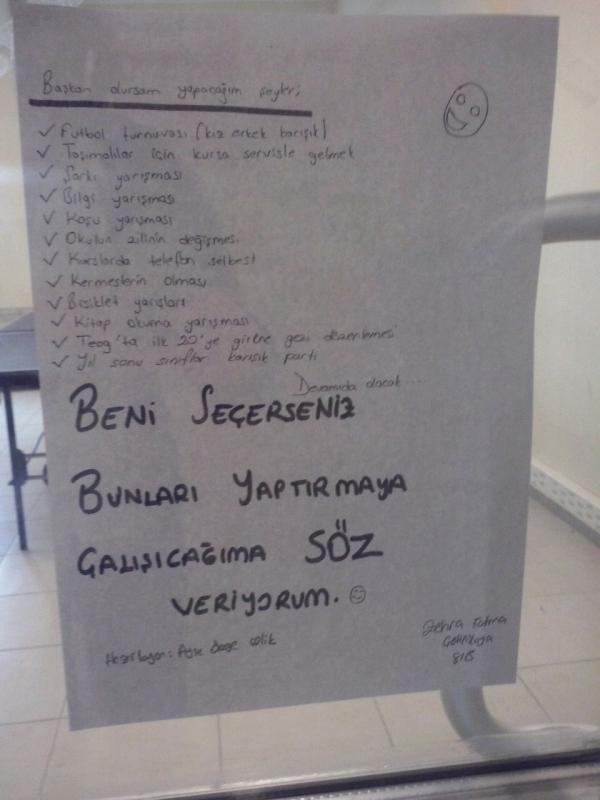 Başkan olursam yapacağım şeyler;
✓ Futbol turnuvası (kız erkek karışık)
✓ Taşımalılar için kursa servisle gelmek
✓ Şarkı yarışması
✓ Bilgi yarışması
✓ Koşu yarışması
✓ Okulun zilinin değişmesi
✓ Kurslarda telefon selbest
✓ Kermeslerin olması
✓ Bisiklet yarışları
✓ Kitap okuma yarışması
✓ Teog'ta ilk 20'ye girene gezi düzenlemesi
✓ Yıl sonu sınıflar karışık parti
Devamıda olacak....
BENİ SEÇERSENİZ
BUNLARI YAPTIRMAYA
ÇALIŞICAĞIMA SÖZ
VERİYORUM.
Hazırlayan: Ayşe çelik
Zehra Fatma
8/B